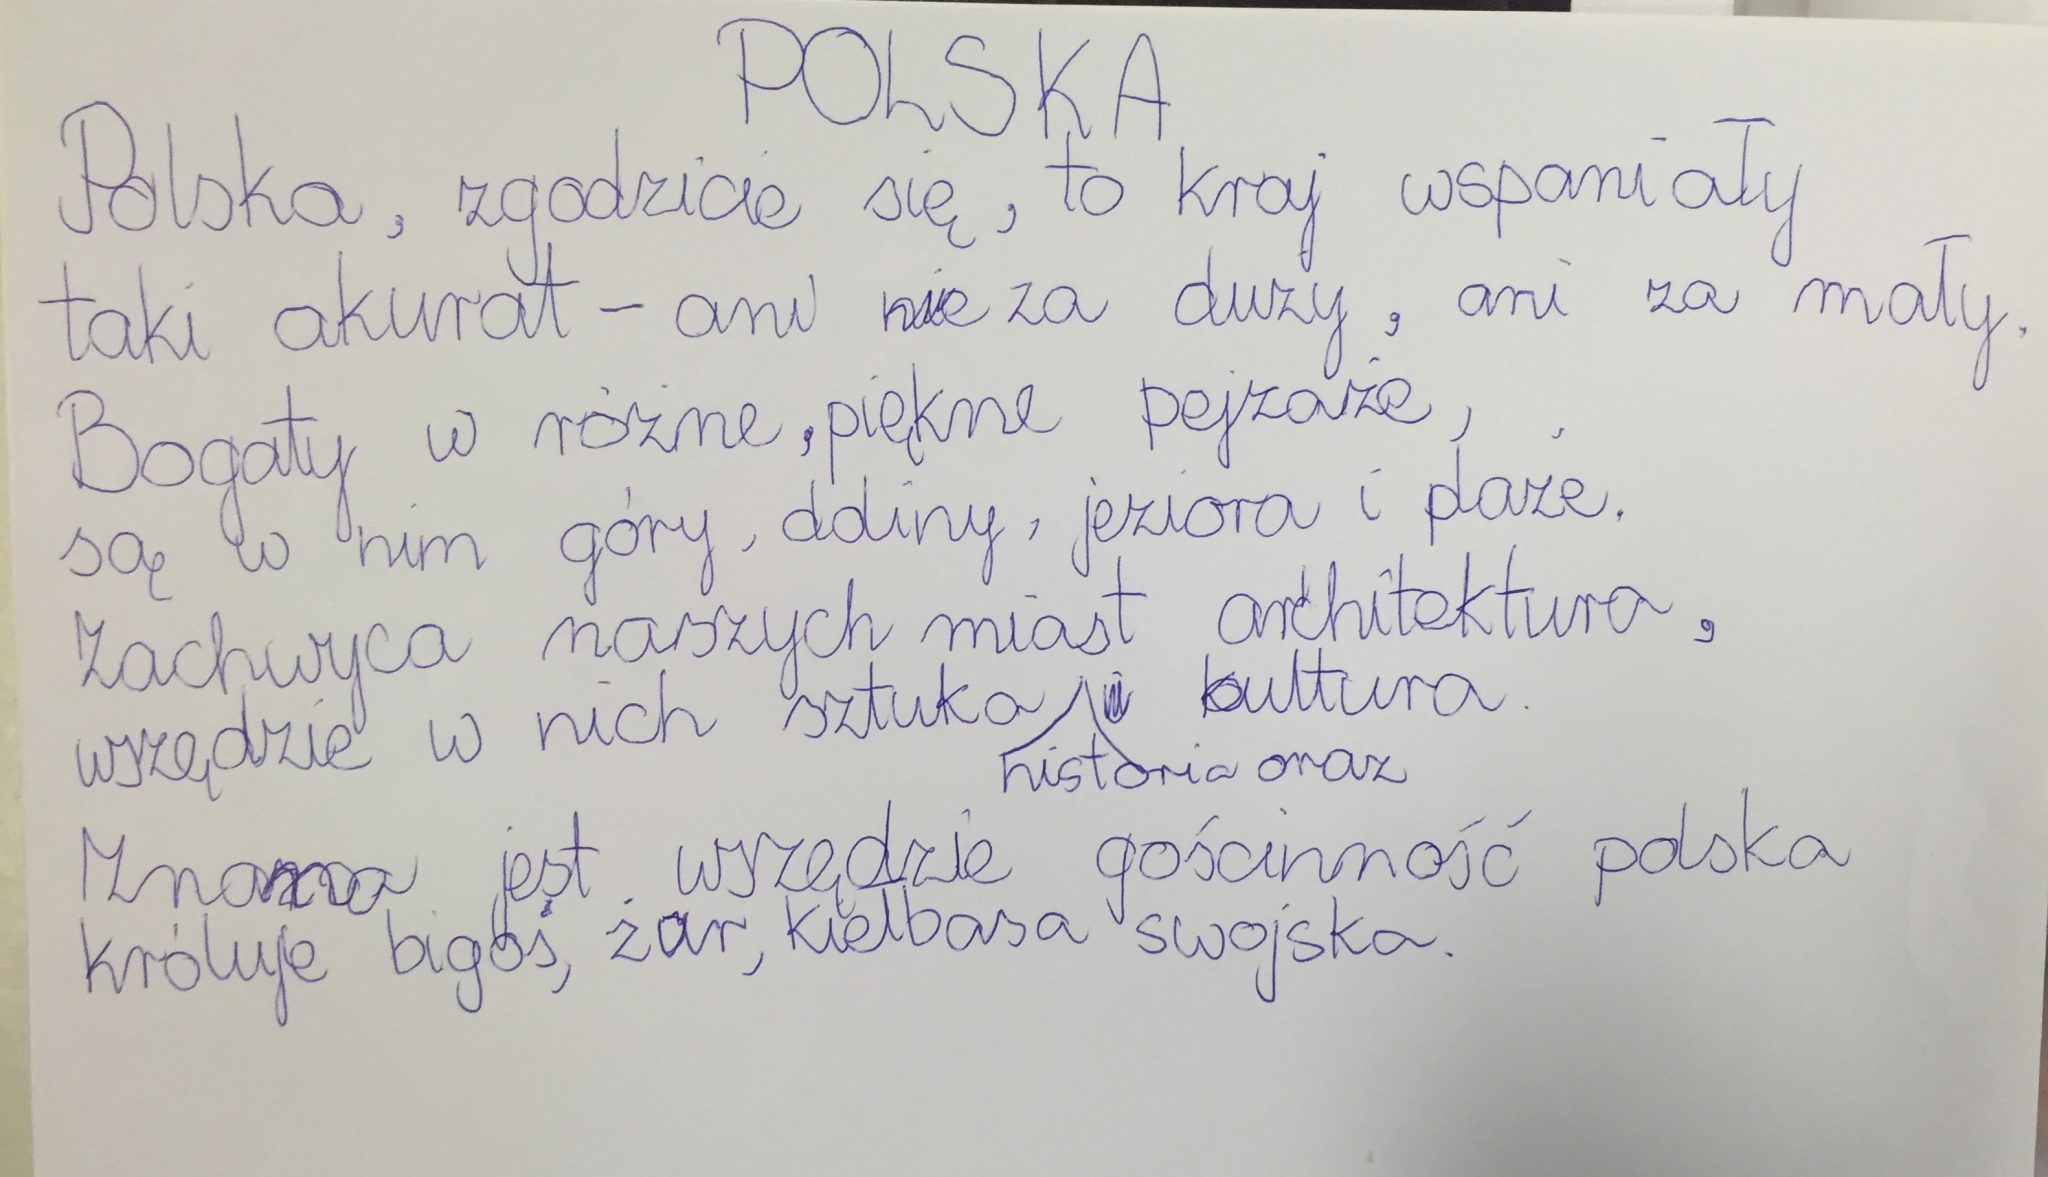 POLSKA
Polska, zgodzicie się, to kraj wspaniały
taki akurat - ani za duzy, ani za mały.
Bogaty w różne, piękne pejzaże,
są w nim góry, doliny, jeziora i plaże.
Zachwyca naszych miast architektura,
wszędzie w nich sztuka historia oraz kultura.
Znana jest wszędzie gościnność polska
króluje bigos, żur, kiełbasa swojska.